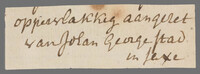 oppervlakkig aangelet
van Johan George stad
in sexe